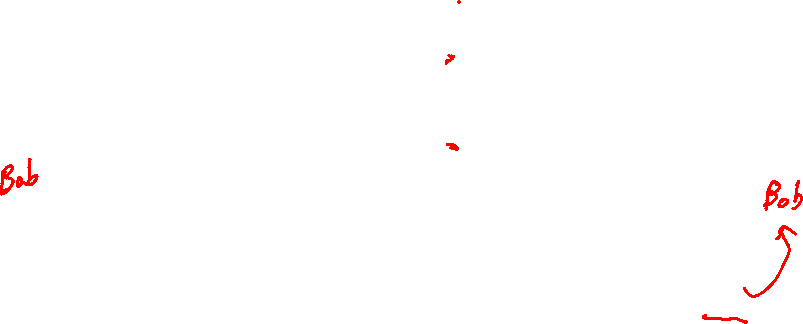 Bob
Bob